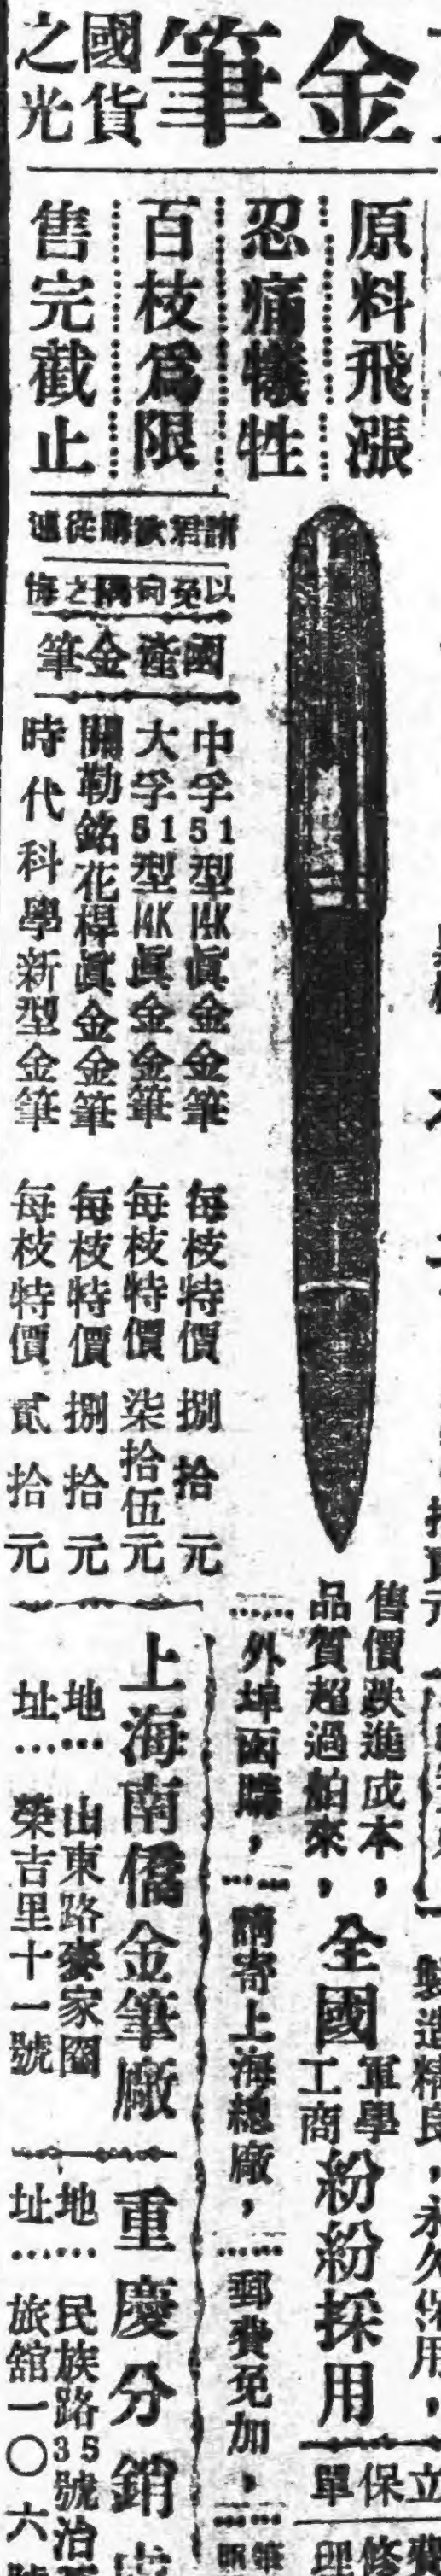 金筆
國貨
之光
原料飛漲
忍痛犧牲
百枝爲限
售完截止
諸君欲購從速
以免向隅之悔
國產金筆
中孚51型14K眞金金筆 每枝特價 捌拾元
大孚51型14K眞金金筆 每枝特價 柒拾伍元
關勒銘花桿眞金金筆 每枝特價 捌拾元
時代科學新型金筆 每枝特價 貳拾元
售價跌進成本，
品質超過舶來，
全國
軍學
工商
紛紛採用
外埠函購，……請寄上海總廠，……郵費免加，……
上海南僑金筆廠
地址…… 山東路麥家圈
榮吉里十一號
重慶分銷
地址…… 民族路35號
旅館一〇六
製造精良，永久保用，
立保單
修理